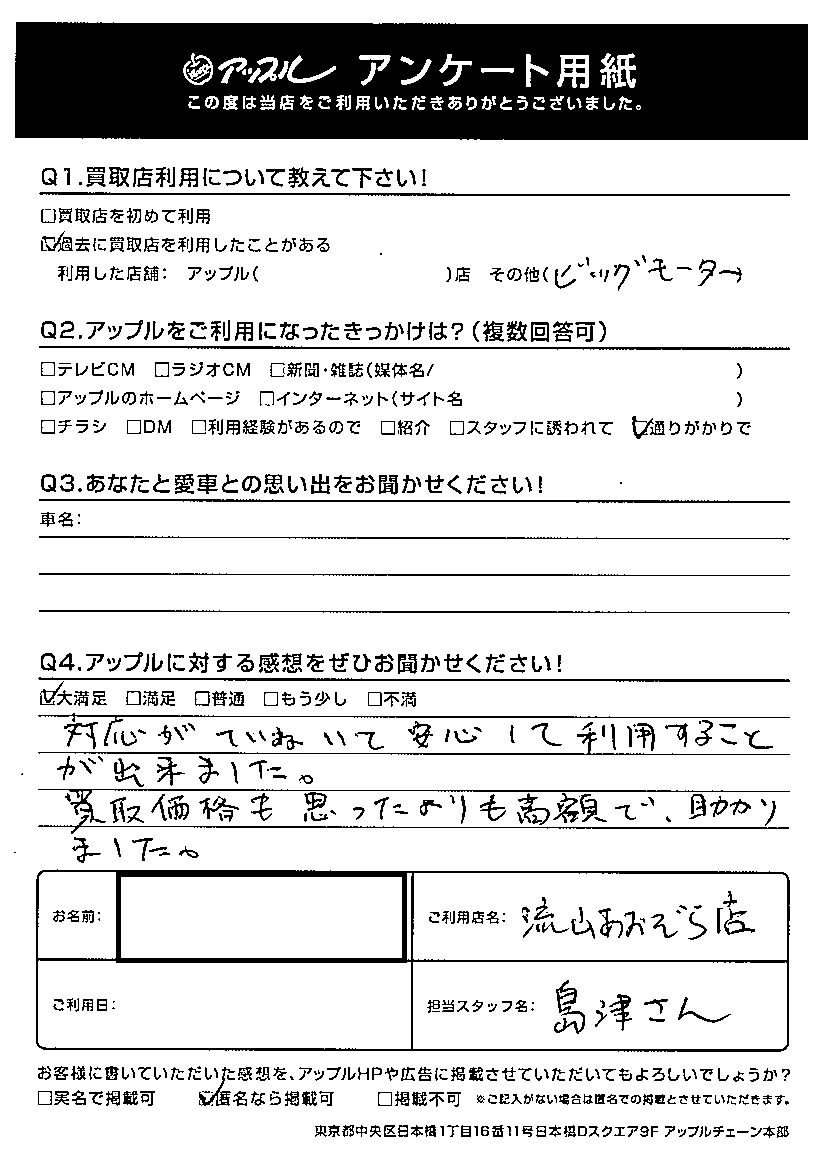 アップル アンケート用紙
この度は当店をご利用いただきありがとうございました。
Q1.買取店利用について教えて下さい!
□買取店を初めて利用
☑過去に買取店を利用したことがある
利用した店舗: アップル( )店 その他(ビッグモーター)
Q2.アップルをご利用になったきっかけは?(複数回答可)
□テレビCM □ラジオCM □新聞・雑誌(媒体名/ )
□アップルのホームページ □インターネット(サイト名 )
□チラシ □DM □利用経験があるので □紹介 □スタッフに誘われて ☑通りがかりで
Q3.あなたと愛車との思い出をお聞かせください!
車名:
Q4.アップルに対する感想をぜひお聞かせください!
☑大満足 □満足 □普通 □もう少し □不満
対応がていねいて安心して利用すること
が出来ました。
買取価格も思ったよりも高額で、助かり
ました。
お名前: ご利用店名: 流山あおぞら店
ご利用日: 担当スタッフ名: 島津さん
お客様に書いていただいた感想を、アップルHPや広告に掲載させていただいてもよろしいでしょうか?
□実名で掲載可 ☑匿名なら掲載可 □掲載不可 ※ご記入がない場合は匿名での掲載とさせていただきます。
東京都中央区日本橋1丁目16番11号日本橋Dスクエア9F アップルチェーン本部